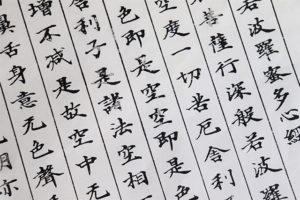 若波羅蜜多心經
菩薩行深般若波羅
空度一切苦厄舍利
色即是空空即是色
舍利子是諸法空相
增不減是故空中无
鼻舌身意无色聲
亦